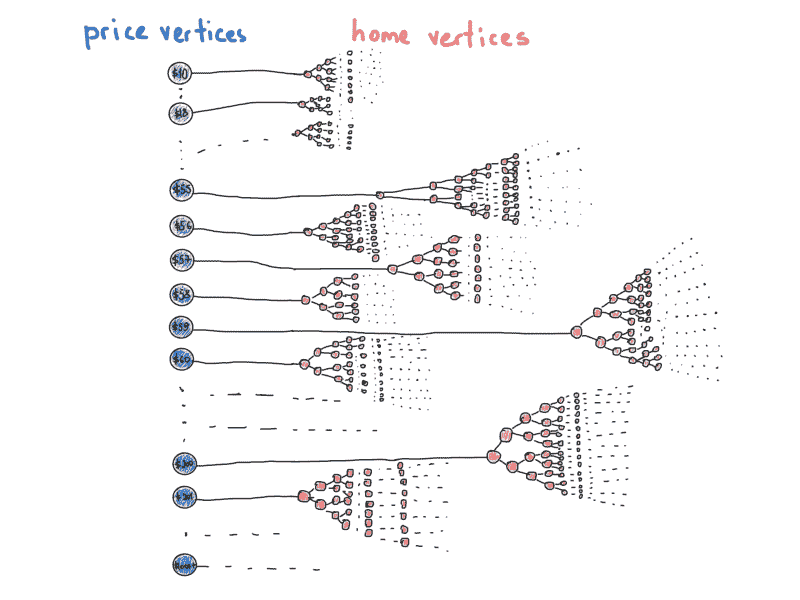 price vertices
home vertices
$10
$55
$56
$57
$59